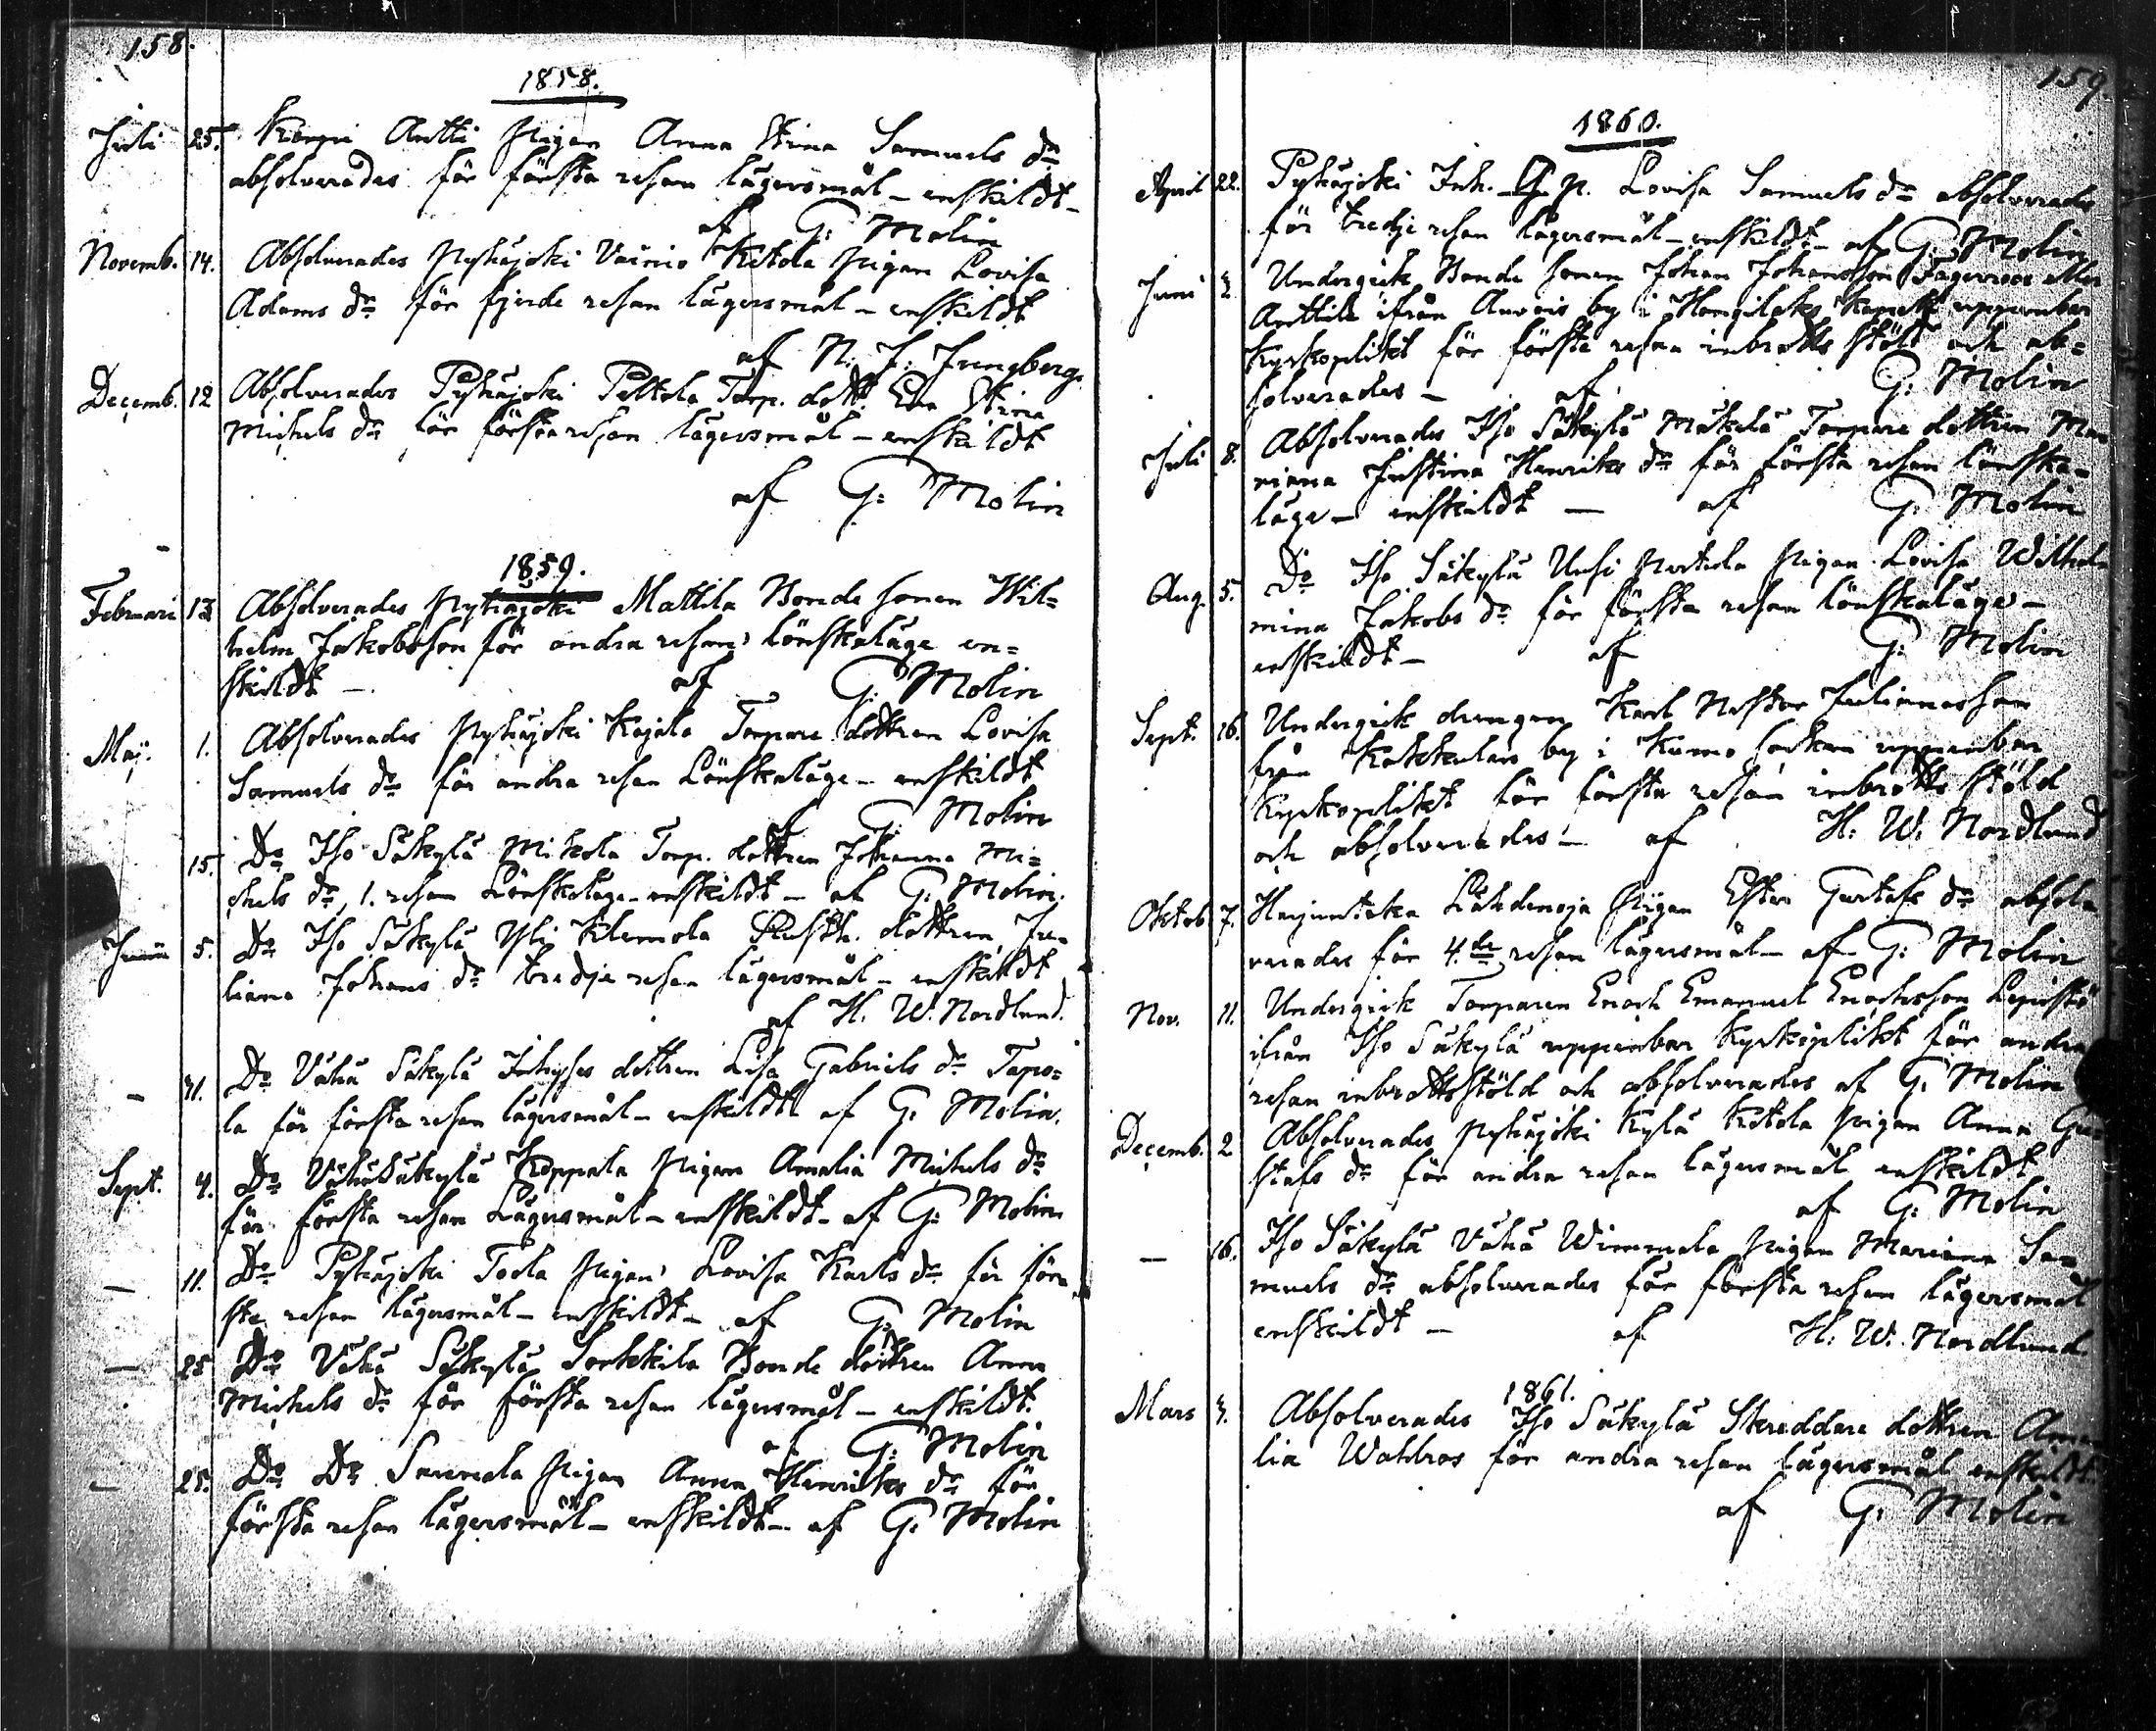 158.
1858.
Juli 25. Korpi Antti Pigan Anna Stina Samuels dr
absolverades för första resan lägersmål – enskildt –
af G: Molin
Novemb. 14. Absolverades Pyhäjoki Vainio Ketola Pigan Lovisa
Adams dr för fjerde resan lägersmål – enskildt
af N: J: Jrengberg.
Decemb. 12 Absolverades Pyhäjoki Peltola Torp. dott. Eva Stina
Michels dr för första resan lägersmål – enskildt
af G: Molin
1859.
Februari 13 Absolverades Pyhäjoki Mattila Bonde sonen Wil=
helm Jakobsson för andra resan lönskaläge en=
skildt – af G: Molin
Maj. 1. Absolverades Pyhäjoki Kajala Torpare dottren Lovisa
Samuels dr för andra resan Lönskaläge – enskildt
af G: Molin
15. Do Iso Säkylä Mikola Torp. dottren Johanna Mi=
chels dr, 1. resan Lönskaläge – enskildt – af G: Molin.
Junii 5. Do Iso Säkylä Yli Kilemola Rusth. dottren Ju=
liana Johans dr tredje resan lägersmål – enskildt
af H. W. Nordlund.
– Do Vähä Säkylä Inhyses dottren Lisa Gabriels dr Tapio=
la för första resan lägersmål – enskildt af G: Molin.
Sept. 4. Do Vähä Säkylä Koppala Pigan Amalia Michels dr
för första resan Lägersmål – enskildt – af G: Molin
– 11. Do Pyhäjoki Toola Pigan Lovisa Karls dr för för=
sta resan lägersmål – enskildt – af G: Molin
– 25 Do Vähä Säkylä Sorkkila Bonde dottren Anna
Michels dr för första resan lägersmål – enskildt.
af G: Molin
– 25. Do Do Pigan Anna Henriks dr för
första resan lägersmål – enskildt – af G: Molin
159.
1860.
April 22. Pyhäjoki Inh. P. Lovisa Samuels dr absolverades
för tredje resan lägersmål – enskildt – af G: Molin
Juni 3 Undergick Bonde sonen Johan Johansson Fagerroos eller
Anttila ifrån Auvois by i Hongilaks Kapell uppenbar
Kyrkoplikt för första resan inbrotts stöld och ab=
solverades – af G: Molin
Juli 8. Absolverades Iso Säkylä Mäkelä Torpare dottren Ma=
riana Justina Henriks dr för första resan lönska=
läge – enskildt – af G: Molin
Aug. 5. Do Iso Säkylä Uusi Pigan Lovisa Wilhel=
mina Jakobs dr för första resan lönskaläge –
enskildt – af G: Molin
Sept. 16. Undergick drengen Karl Nestor Julianasson
från Kakkulais by i Kumo socken uppenbar
Kyrkoplikt för första resan inbrotts stöld
och absolverades – af H: W: Nordlund
Oktob. 7. Harjunteka Lähdenoja Pigan Ester Gustafs dr absol=
verades för 4.de resan lägersmål – af G: Molin
Nov. 11. Undergick Torparen Enoch Emanuel Enochsson Lepistö
ifrån Iso Säkylä uppenbar Kyrkoplikt för andra
resan inbrottsstöld och absolverades af G: Molin
Decemb. 2 Absolverades Pyhäjoki Kylä Ketola Pigan Anna Gu=
stafs dr för andra resan lägersmål enskildt
af G: Molin
– 16. Iso Säkylä Vähä Wimmala Pigan Mariana Sa=
muels dr absolverades för första resan lägersmål
enskildt – af H: W: Nordlund
1861.
Mars 3. Absolverades Iso Säkylä Skreddare dottren Ama=
lia Wahlros för andra resan lägersmål enskildt.
af G: Molin